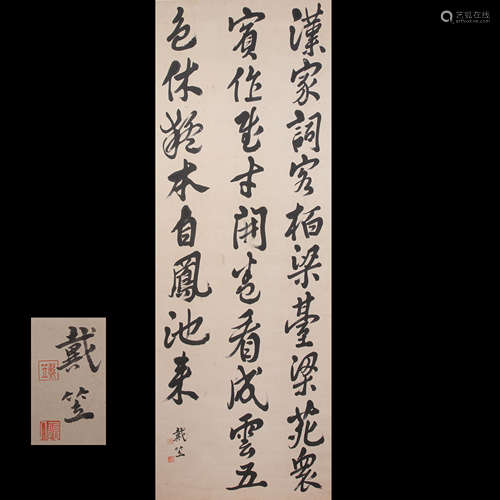 漢家詞客栢梁臺梁苑衆
賓作賦才開卷看成雲五
色休疑本自鳳池来
戴笠
戴笠
艺狐在线